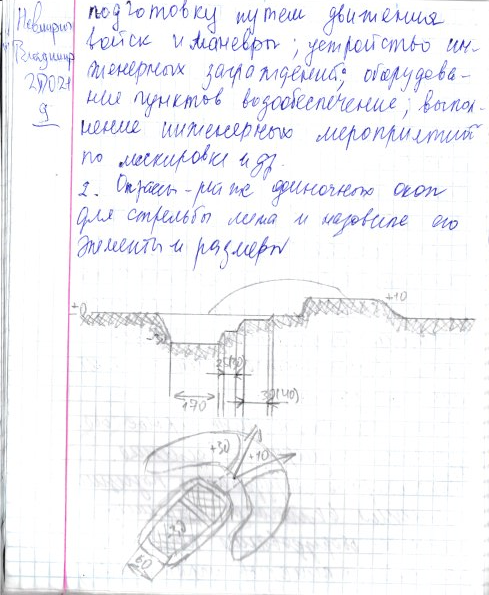 Владимир
9
подготовку путем движения
войск и маневры; устройство ин-
женерных заграждений; оборудова-
ние пунктов водообеспечение; выпол-
нение инженерных мероприятий
по маскировке и др.
2. одиночный окоп
для стрельбы лежа и назовите его
элементы и размеры
±0
+10
-30
30(40)
170
+30
+10
-30
60